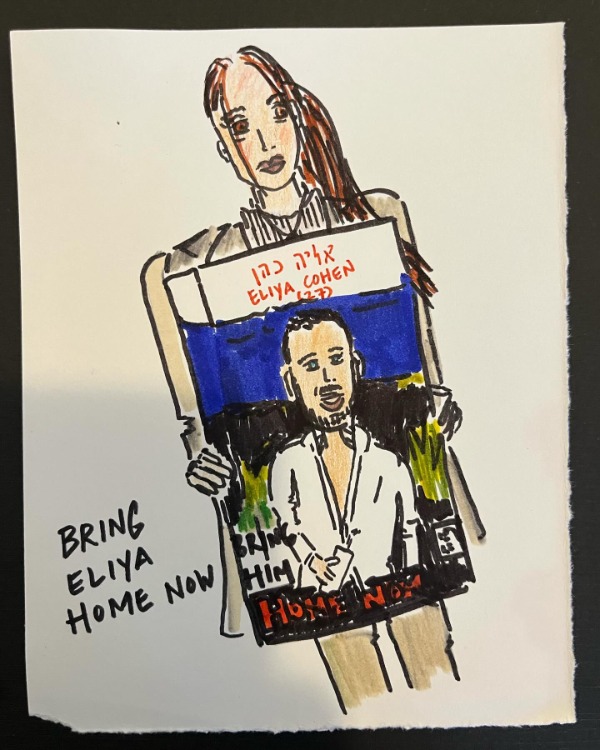 אליה כהן
ELIYA COHEN
(27)
BRING
HIM
HOME NOW
BRING
ELIYA
HOME NOW